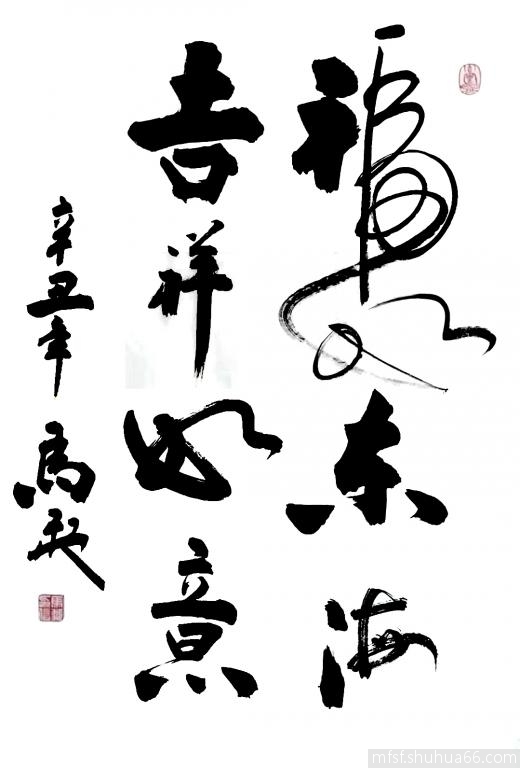 福如东海
吉祥如意
辛丑年 馬
mfsf.shuhua66.com